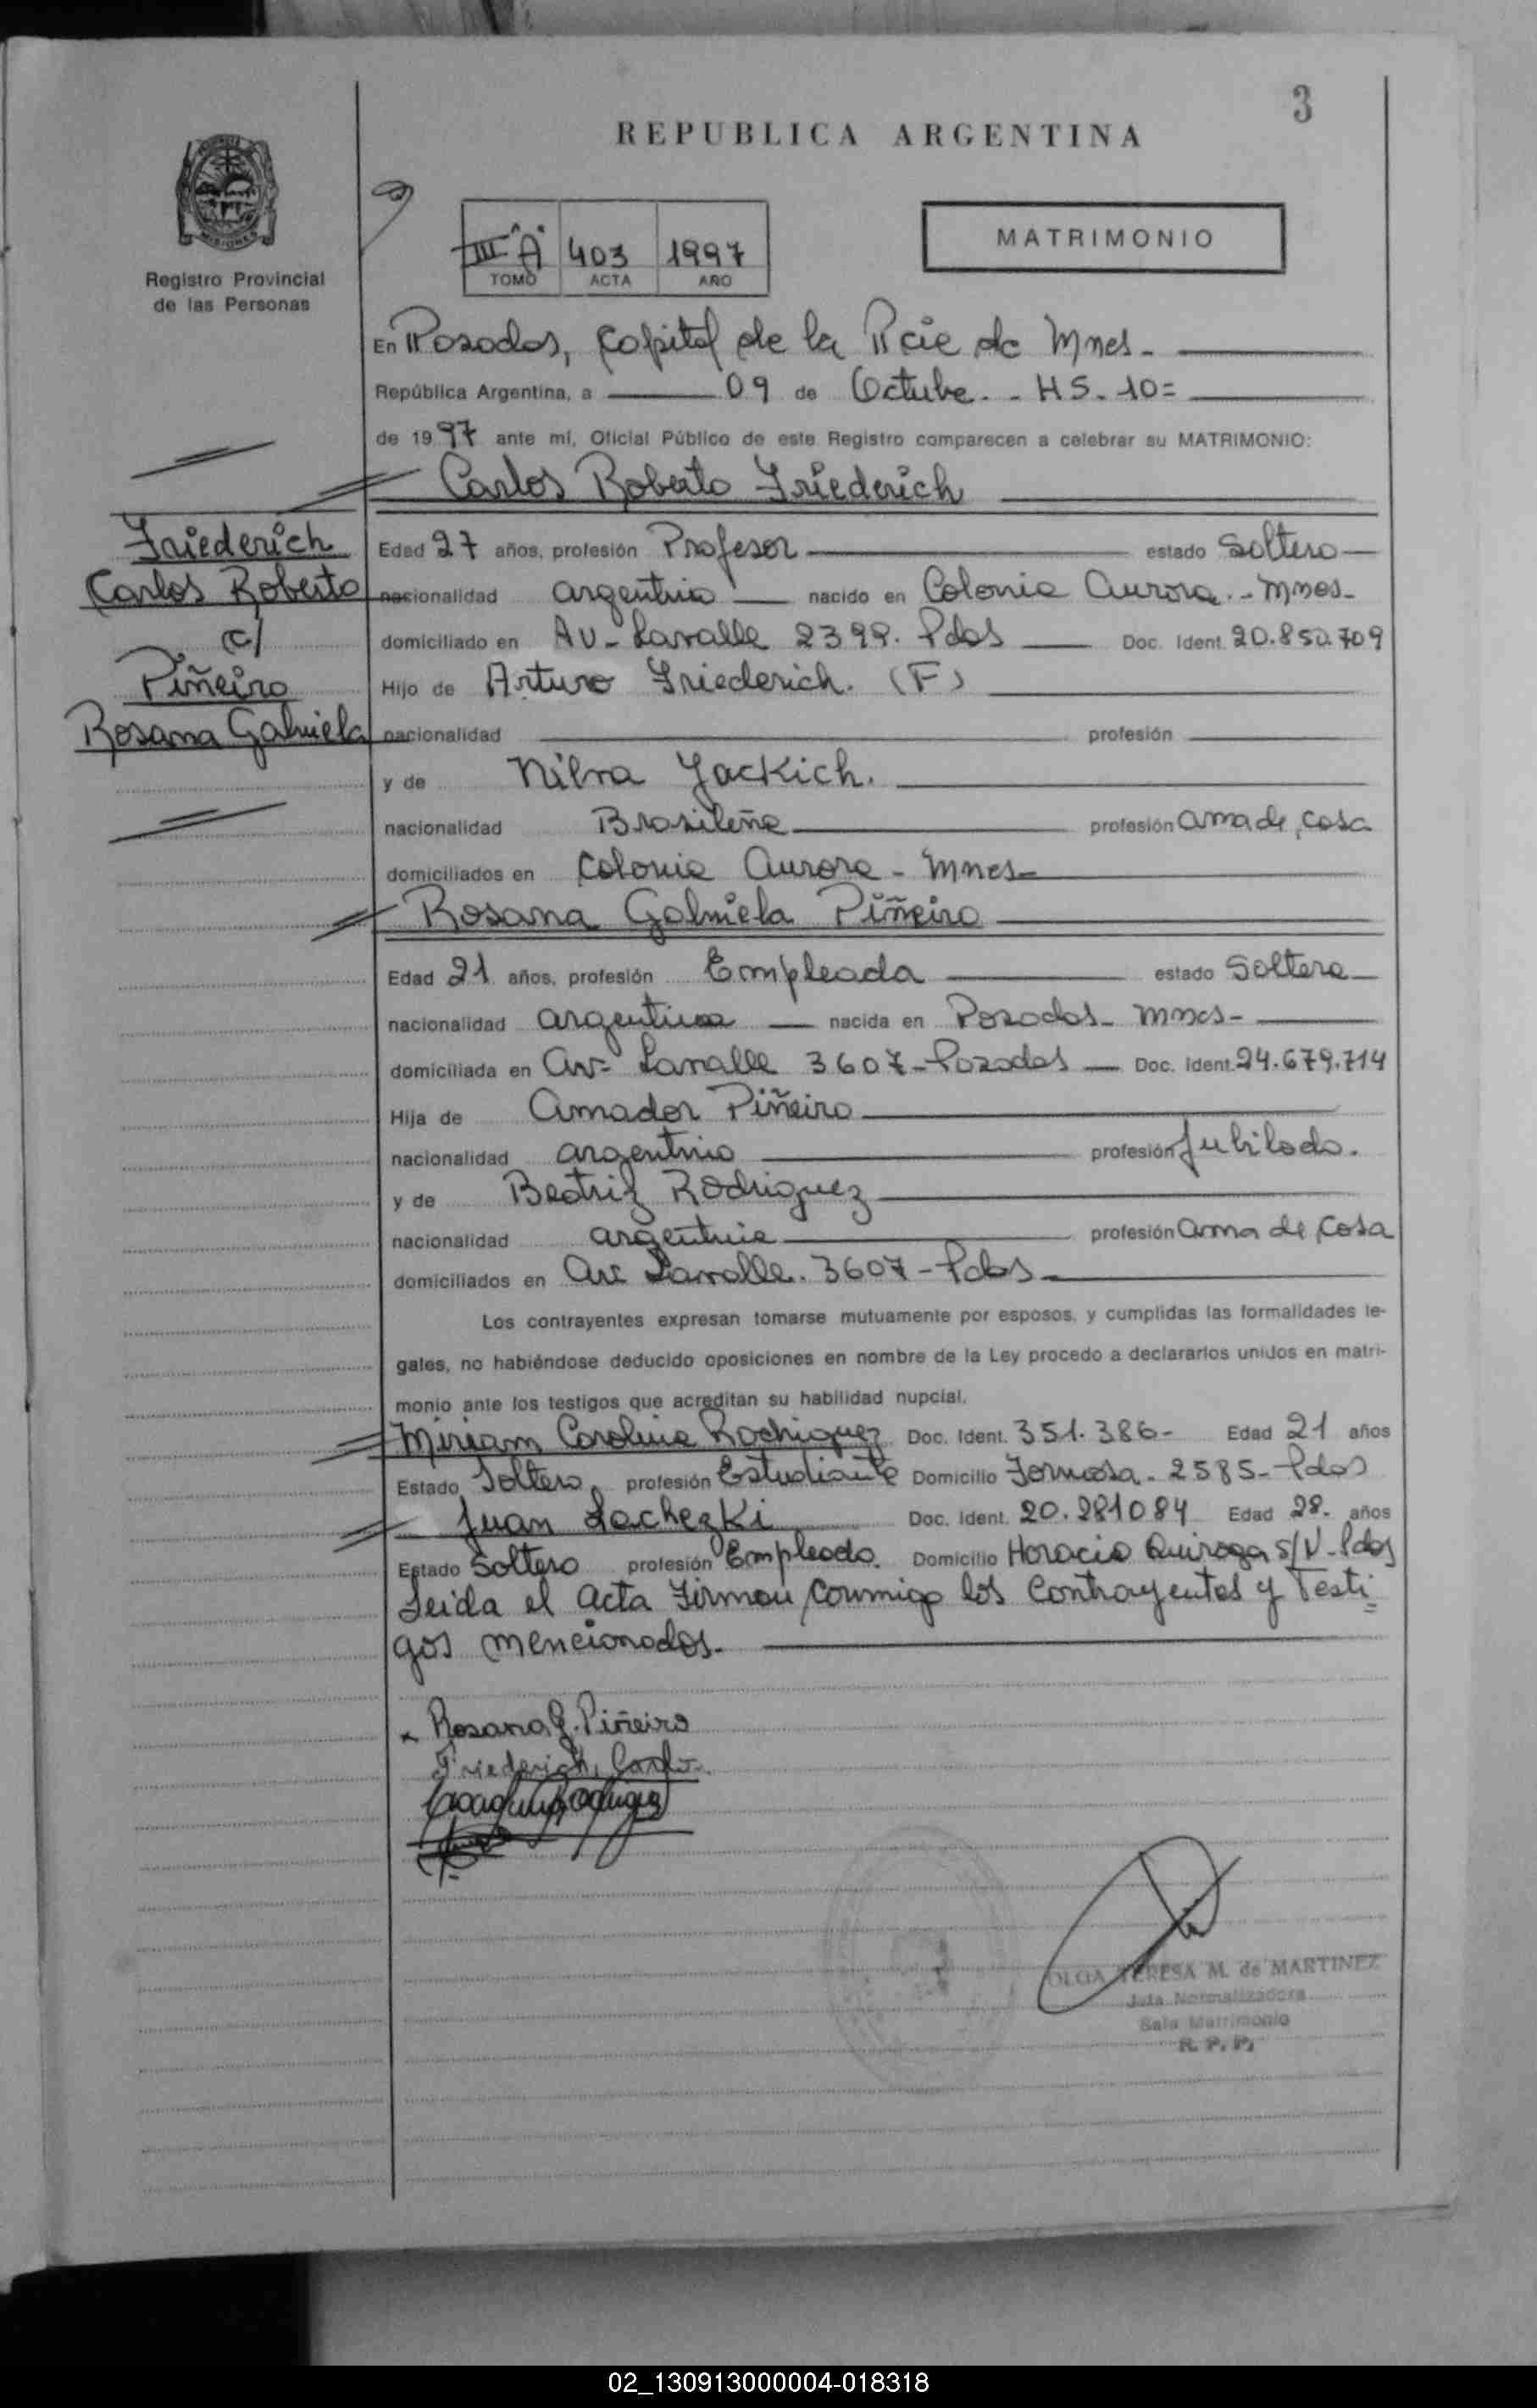 3
REPUBLICA ARGENTINA
MATRIMONIO
III "A" 403 1997
TOMO ACTA AÑO
Registro Provincial
de las Personas
En Posadas, Capital de la Pcie de Mnes.
República Argentina, a 09 de Octube. - HS. 10=
de 1997 ante mí, Oficial Público de este Registro comparecen a celebrar su MATRIMONIO:
Carlos Roberto Friederich
Friederich
Carlos Roberto
c/
Piñeiro
Rosana Gabriela
Edad 27 años, profesión Profesor estado Soltero
nacionalidad argentino nacido en Colonia Aurora.- Mnes-
domiciliado en Av- Lavalle 2399. Pdas Doc. Ident. 20.850.709
Hijo de Arturo Friederich. (F)
nacionalidad profesión
y de Nilva Yackich.
nacionalidad Brasileña profesión ama de casa
domiciliados en Colonia Aurora - Mnes-
Rosana Gabriela Piñeiro
Edad 21 años, profesión Empleada estado Soltera
nacionalidad argentina nacida en Posadas- Mnes-
domiciliada en Av- Lavalle 3607-Posadas Doc. Ident. 24.679.714
Hija de Amador Piñeiro
nacionalidad argentino profesión Jubilado.
y de Beatriz Rodriguez
nacionalidad argentina profesión ama de casa
domiciliados en Av Lavalle. 3607-Pdas-
Los contrayentes expresan tomarse mutuamente por esposos, y cumplidas las formalidades le-
gales, no habiéndose deducido oposiciones en nombre de la Ley procedo a declararlos unidos en matri-
monio ante los testigos que acreditan su habilidad nupcial.
Miriam Carolina Rodriguez Doc. Ident. 351.386- Edad 21 años
Estado Soltera profesión Estudiante Domicilio Formosa- 2585- Pdas
Juan Lachezki Doc. Ident. 20.281084 Edad 28. años
Estado Soltero profesión Empleado. Domicilio Horacio Quiroga S/N-Pdas
Leida el Acta Firman conmigo los Contrayentes y Testi
gos mencionados.
Rosana G. Piñeiro
Friederich, Carlos
OLGA TERESA M. de MARTINEZ
Jefa Normalizadora
Sala Matrimonio
R. P. P.
02_130913000004-018318